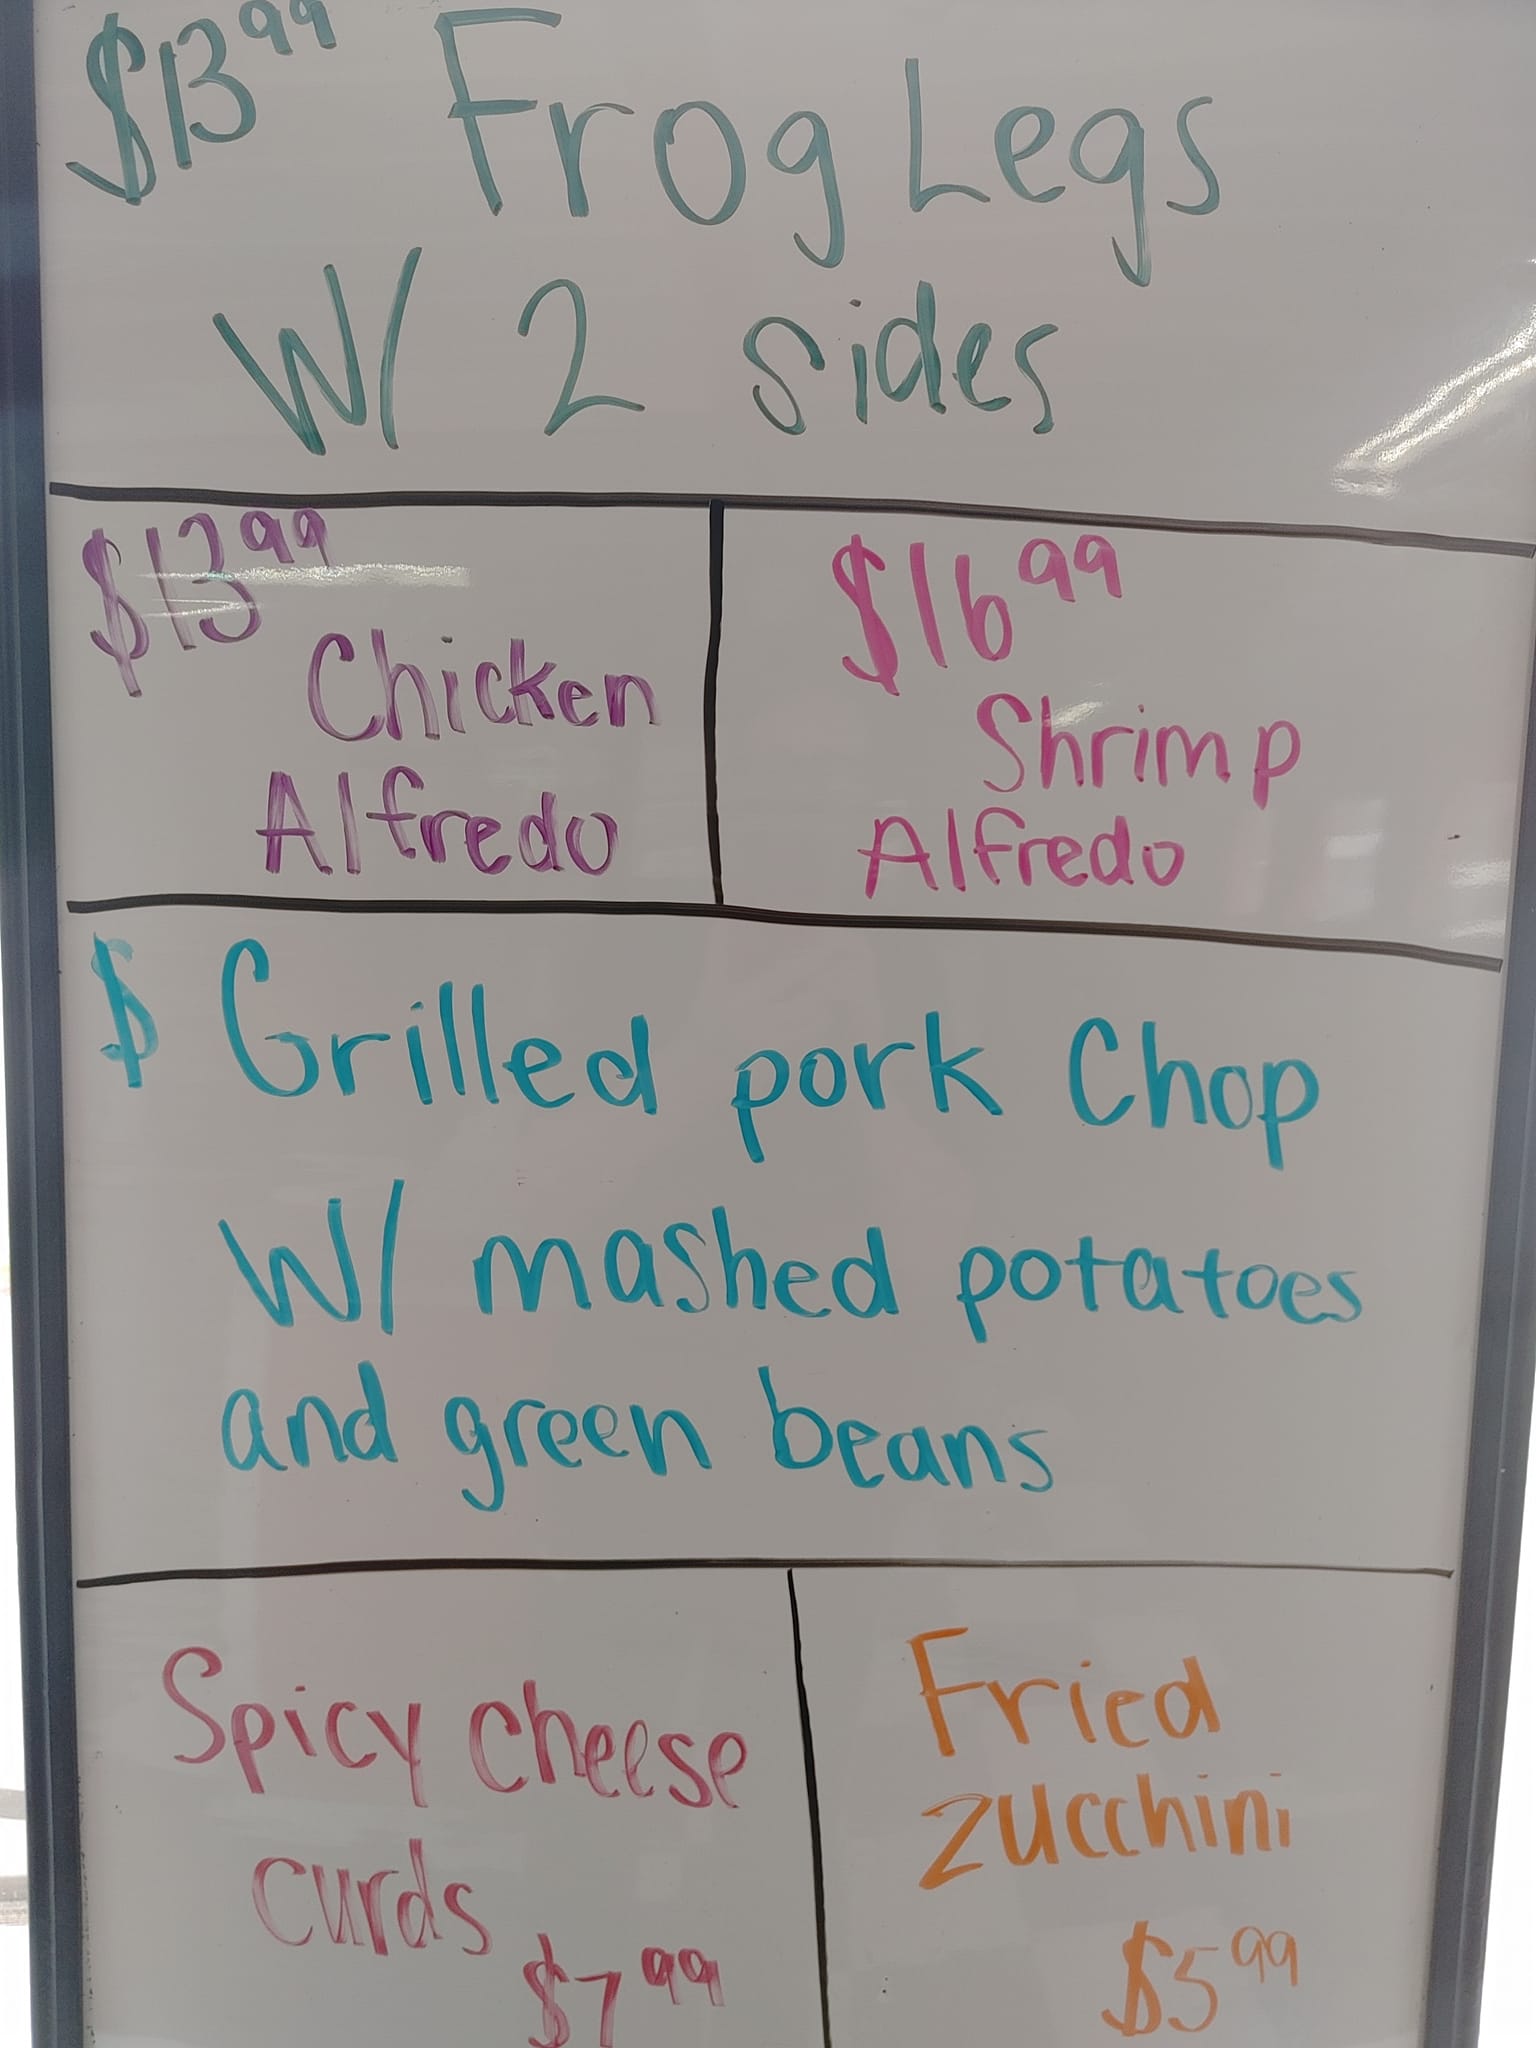 $13.99 Frog Legs
W/ 2 sides
$13.99
Chicken
Alfredo
$16.99
Shrimp
Alfredo
$ Grilled pork Chop
W/ mashed potatoes
and green beans
Spicy Cheese
curds
$7.99
Fried
zucchini
$5.99